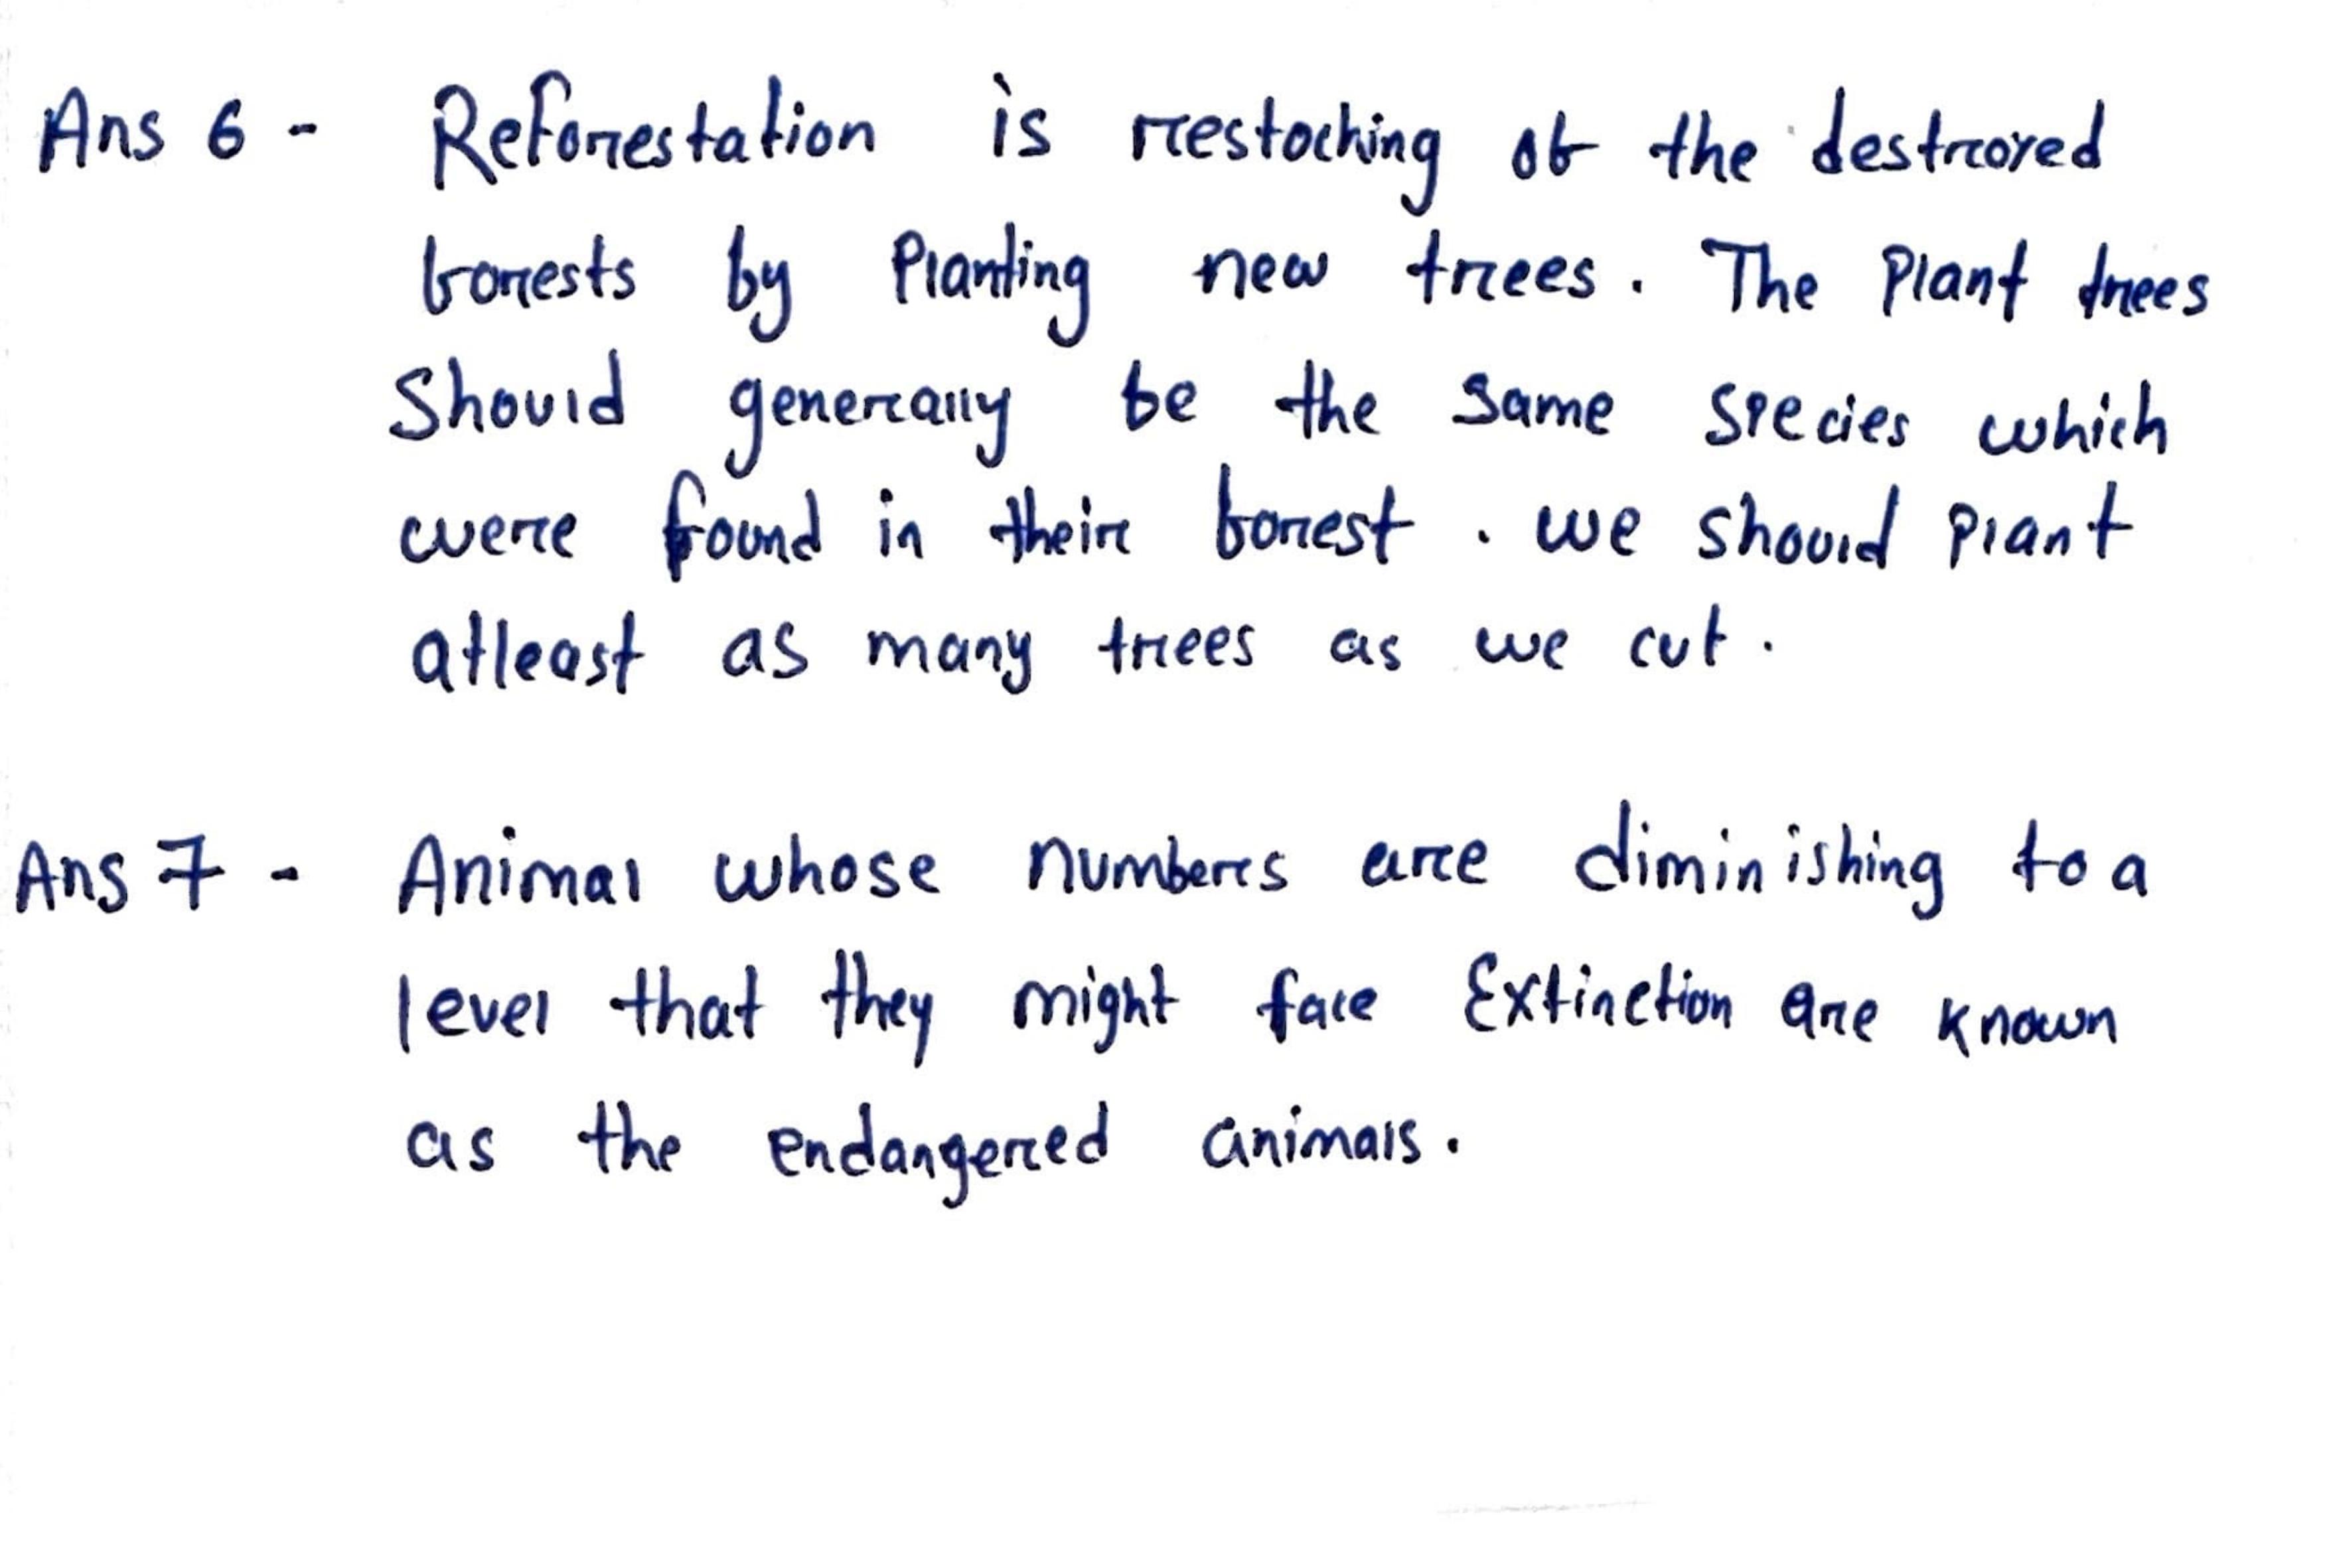 Ans 6 - Reforestation is restocking of the destroyed
forests by Planting new trees. The Plant trees
Should generally be the same species which
were found in their forest. we should plant
atleast as many trees as we cut.
Ans 7 - Animal whose numbers are diminishing to a
level that they might face Extinction are known
as the endangered animals.